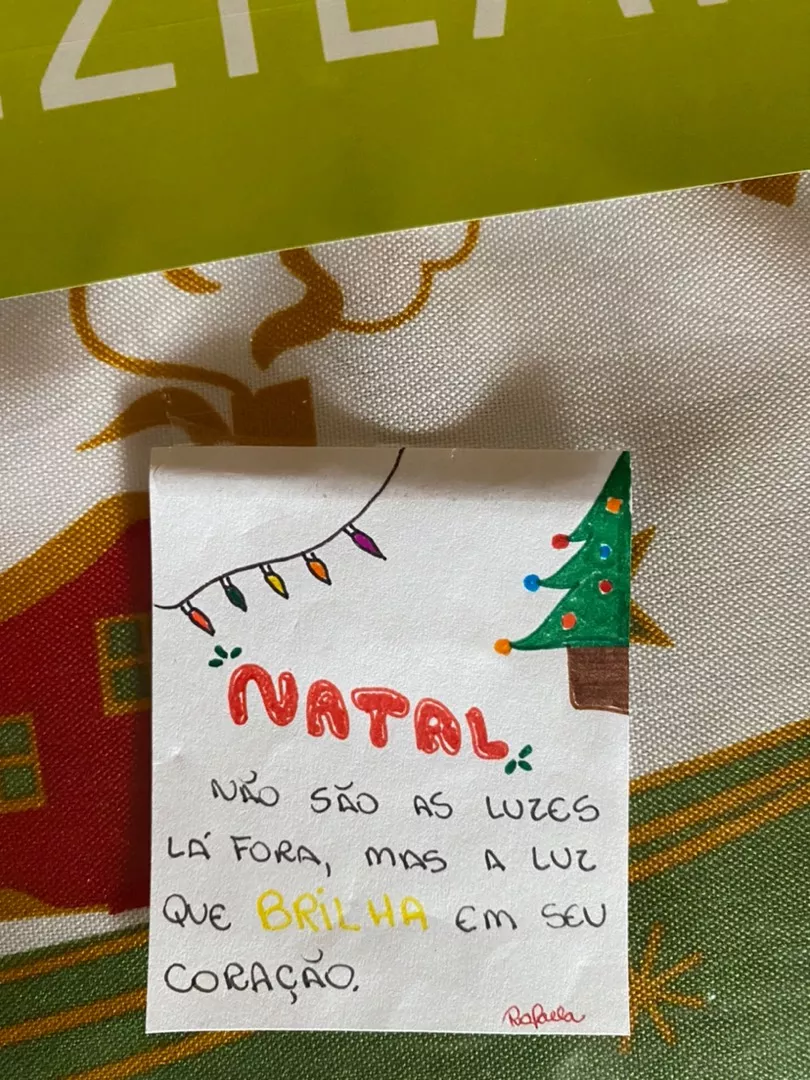 NATAL
NÃO SÃO AS LUZES
LÁ FORA, MAS A LUZ
QUE BRILHA EM SEU
CORAÇÃO.
Rafaela